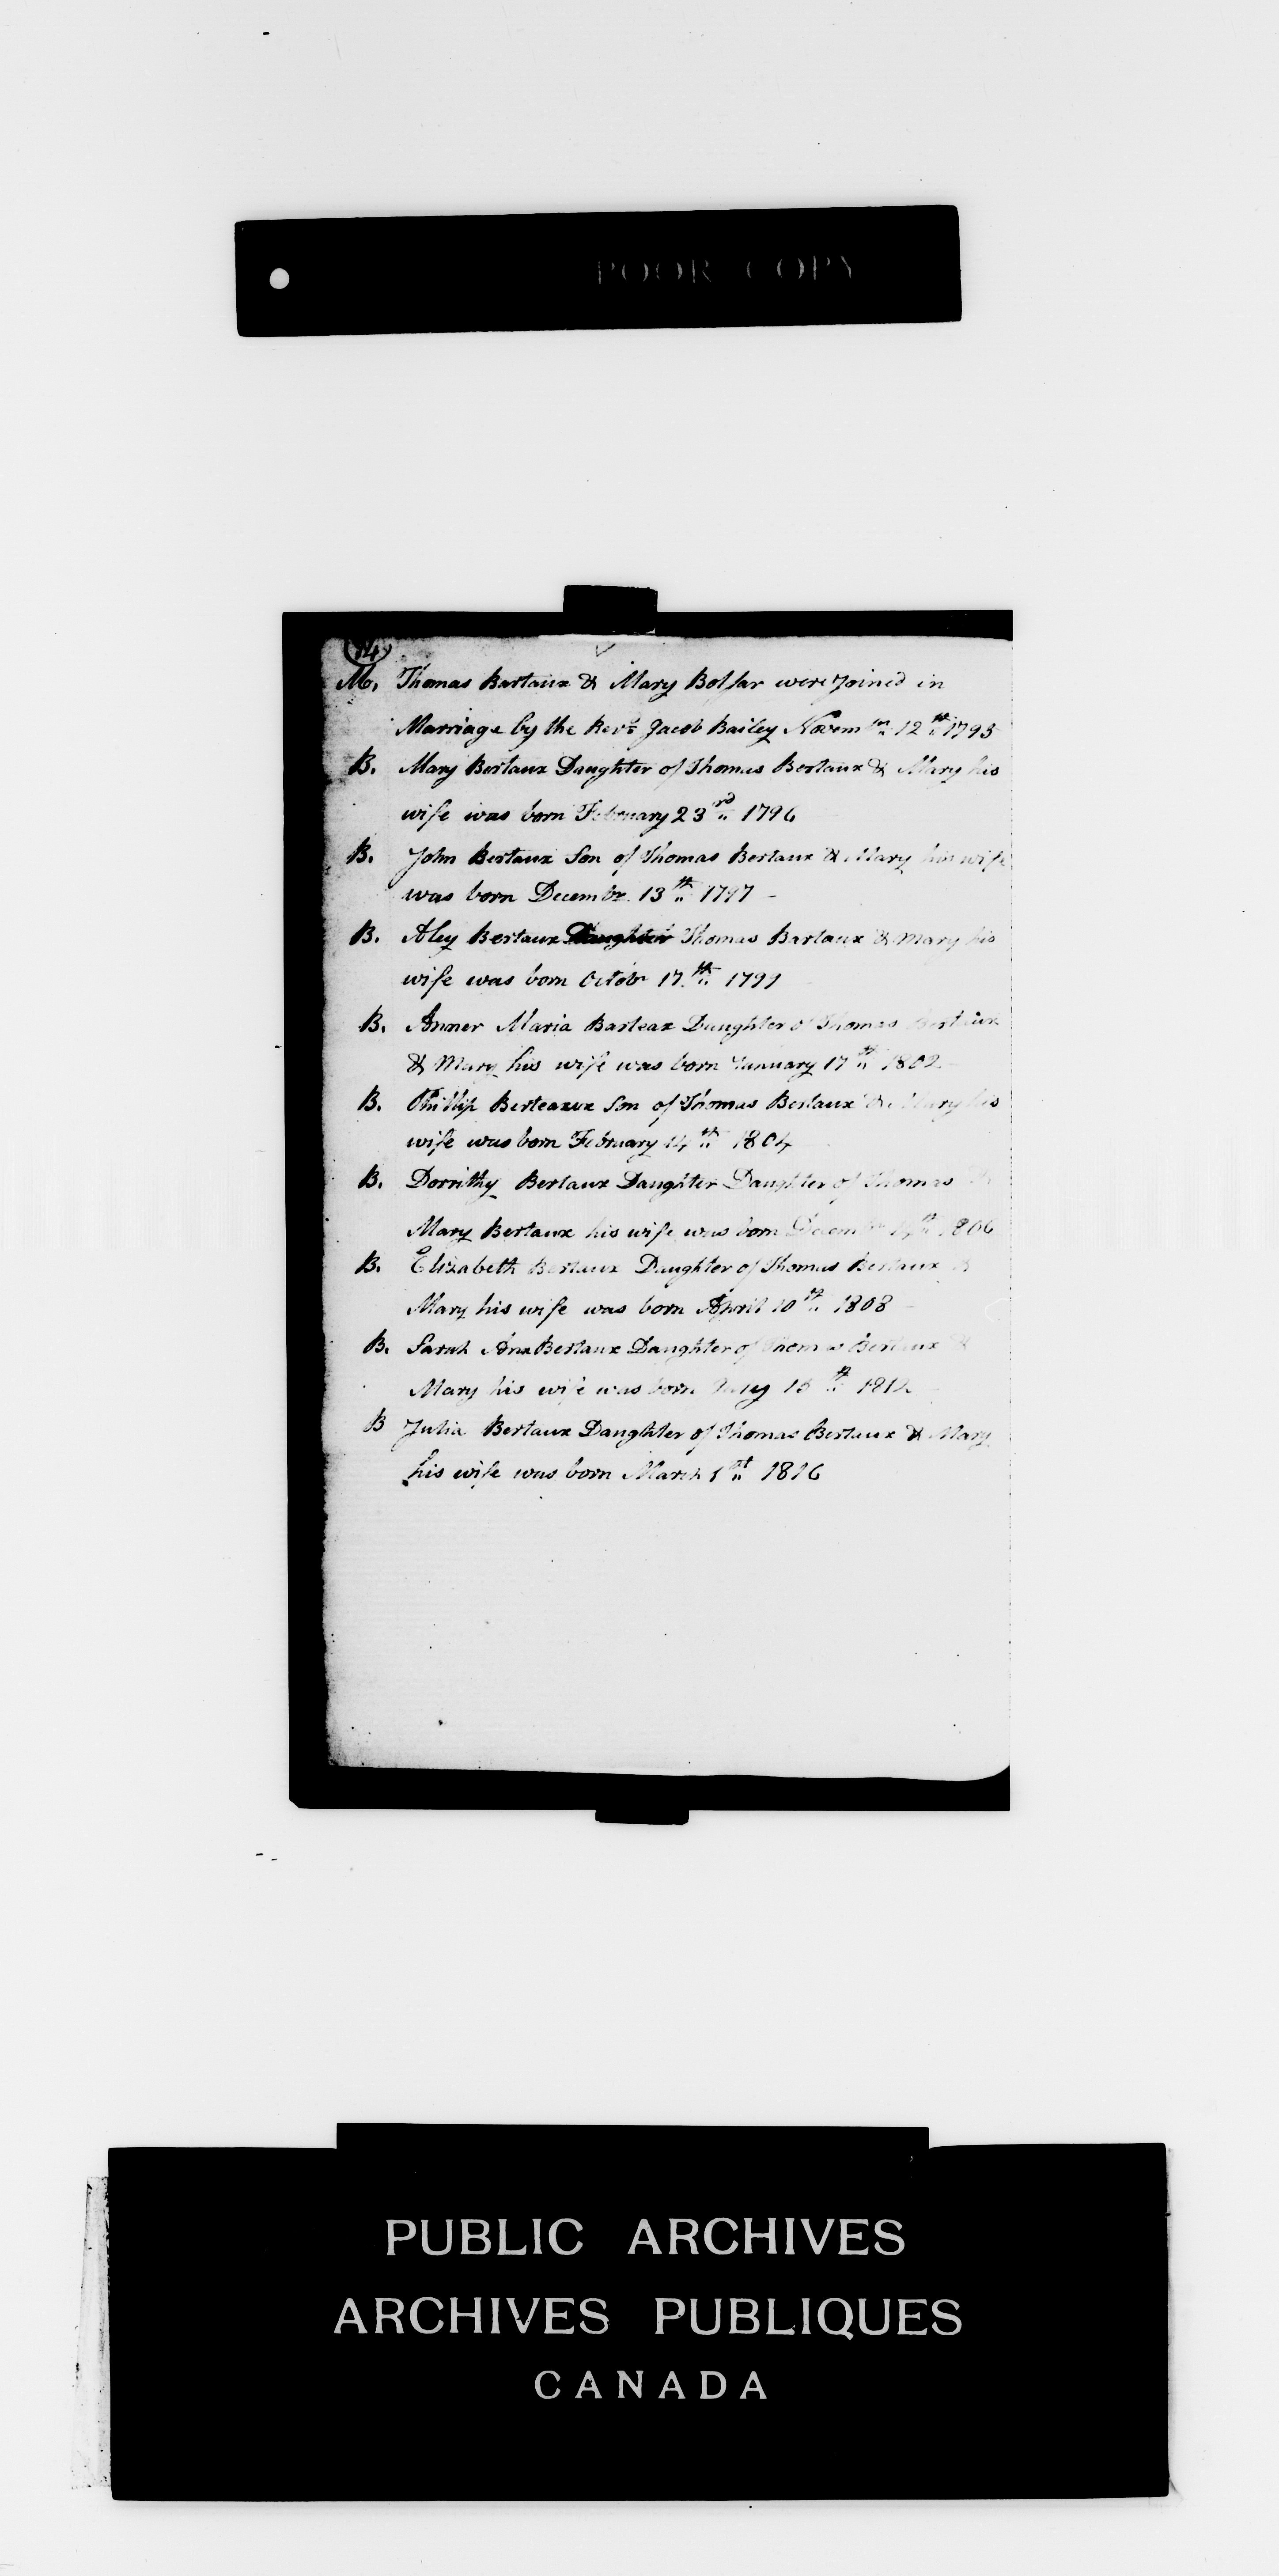 POOR COPY
(14)
M. Thomas Bartaux & Mary Bolsar were Joined in
Marriage by the Revd. Jacob Bailey Novembr. 12th 1795
B. Mary Bertaux Daughter of Thomas Bertaux & Mary his
wife was born February 23rd 1796
B. John Bertaux Son of Thomas Bertaux & Mary his wife
was born Decembr. 13th 1797 -
B. Aley Bertaux Daughter Thomas Bartaux & Mary his
wife was born Octobr 17th 1799
B. Anner Maria Barteax Daughter of Thomas Bertaux
& Mary his wife was born January 17th 1802 -
B. Phillip Berteaux Son of Thomas Bertaux & Mary his
wife was born February 14th 1804
B. Dorrithy Bertaux Daughter Daughter of Thomas &
Mary Bertaux his wife was born Decembr th 1806
B. Elizabeth Bertaux Daughter of Thomas Bertaux &
Mary his wife was born April 10th 1808 -
B. Sarah Ann Bertaux Daughter of Thomas Bertaux &
Mary his wife was born th 1812 -
B Julia Bertaux Daughter of Thomas Bertaux & Mary
his wife was born March 1st 1816
PUBLIC ARCHIVES
ARCHIVES PUBLIQUES
CANADA